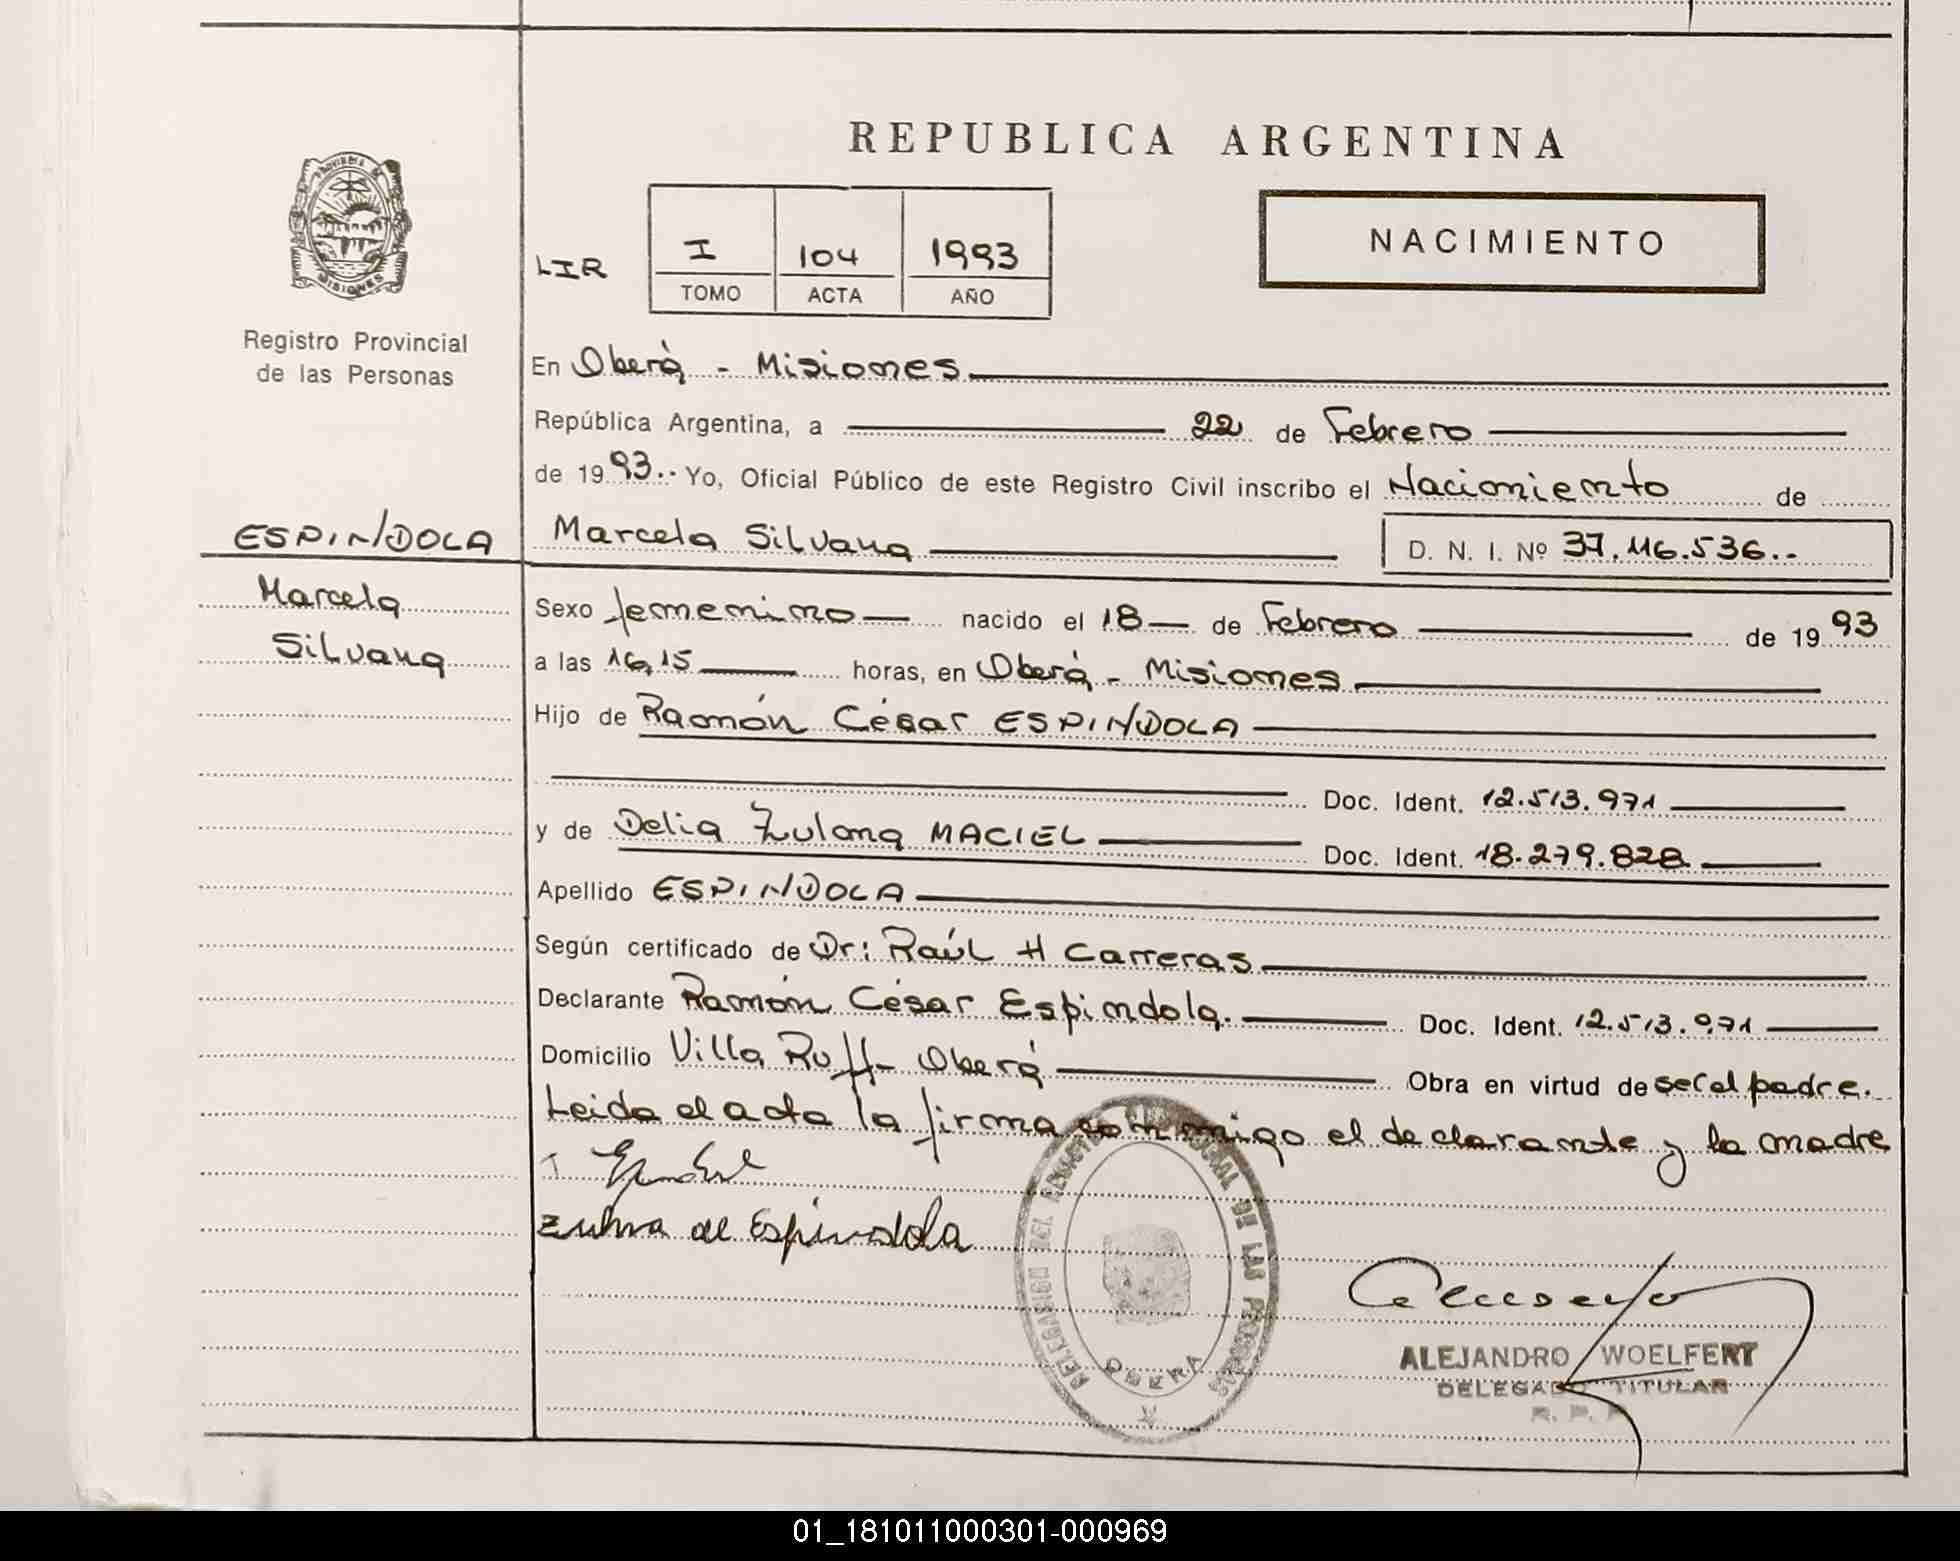 REPUBLICA ARGENTINA
PROVINCIA
MISIONES
Registro Provincial
de las Personas
LIR
I 104 1993
TOMO ACTA AÑO
NACIMIENTO
En Oberá - Misiones
República Argentina, a 22 de Febrero
de 1993.- Yo, Oficial Público de este Registro Civil inscribo el Nacimiento de
ESPINDOLA
Marcela
Silvana
Marcela Silvana D. N. I. Nº 37.116.536.-
Sexo femenino nacido el 18 de Febrero de 1993
a las 16,15 horas, en Oberá - Misiones
Hijo de Ramón César ESPINDOLA
Doc. Ident. 12.513.971
y de Delia Zulma MACIEL Doc. Ident. 18.279.828
Apellido ESPINDOLA
Según certificado de Dr: Raúl H Carreras
Declarante Ramón César Espindola. Doc. Ident. 12.513.971
Domicilio Villa Ruff - Oberá Obra en virtud de ser el padre.
Leida el acta la firma conmigo el declarante y la madre
Zulma de Espindola
DELEGACION DEL REGISTRO PROVINCIAL DE LAS PERSONAS
OBERA
ALEJANDRO WOELFERT
DELEGADO TITULAR
R. P. P
01_181011000301-000969